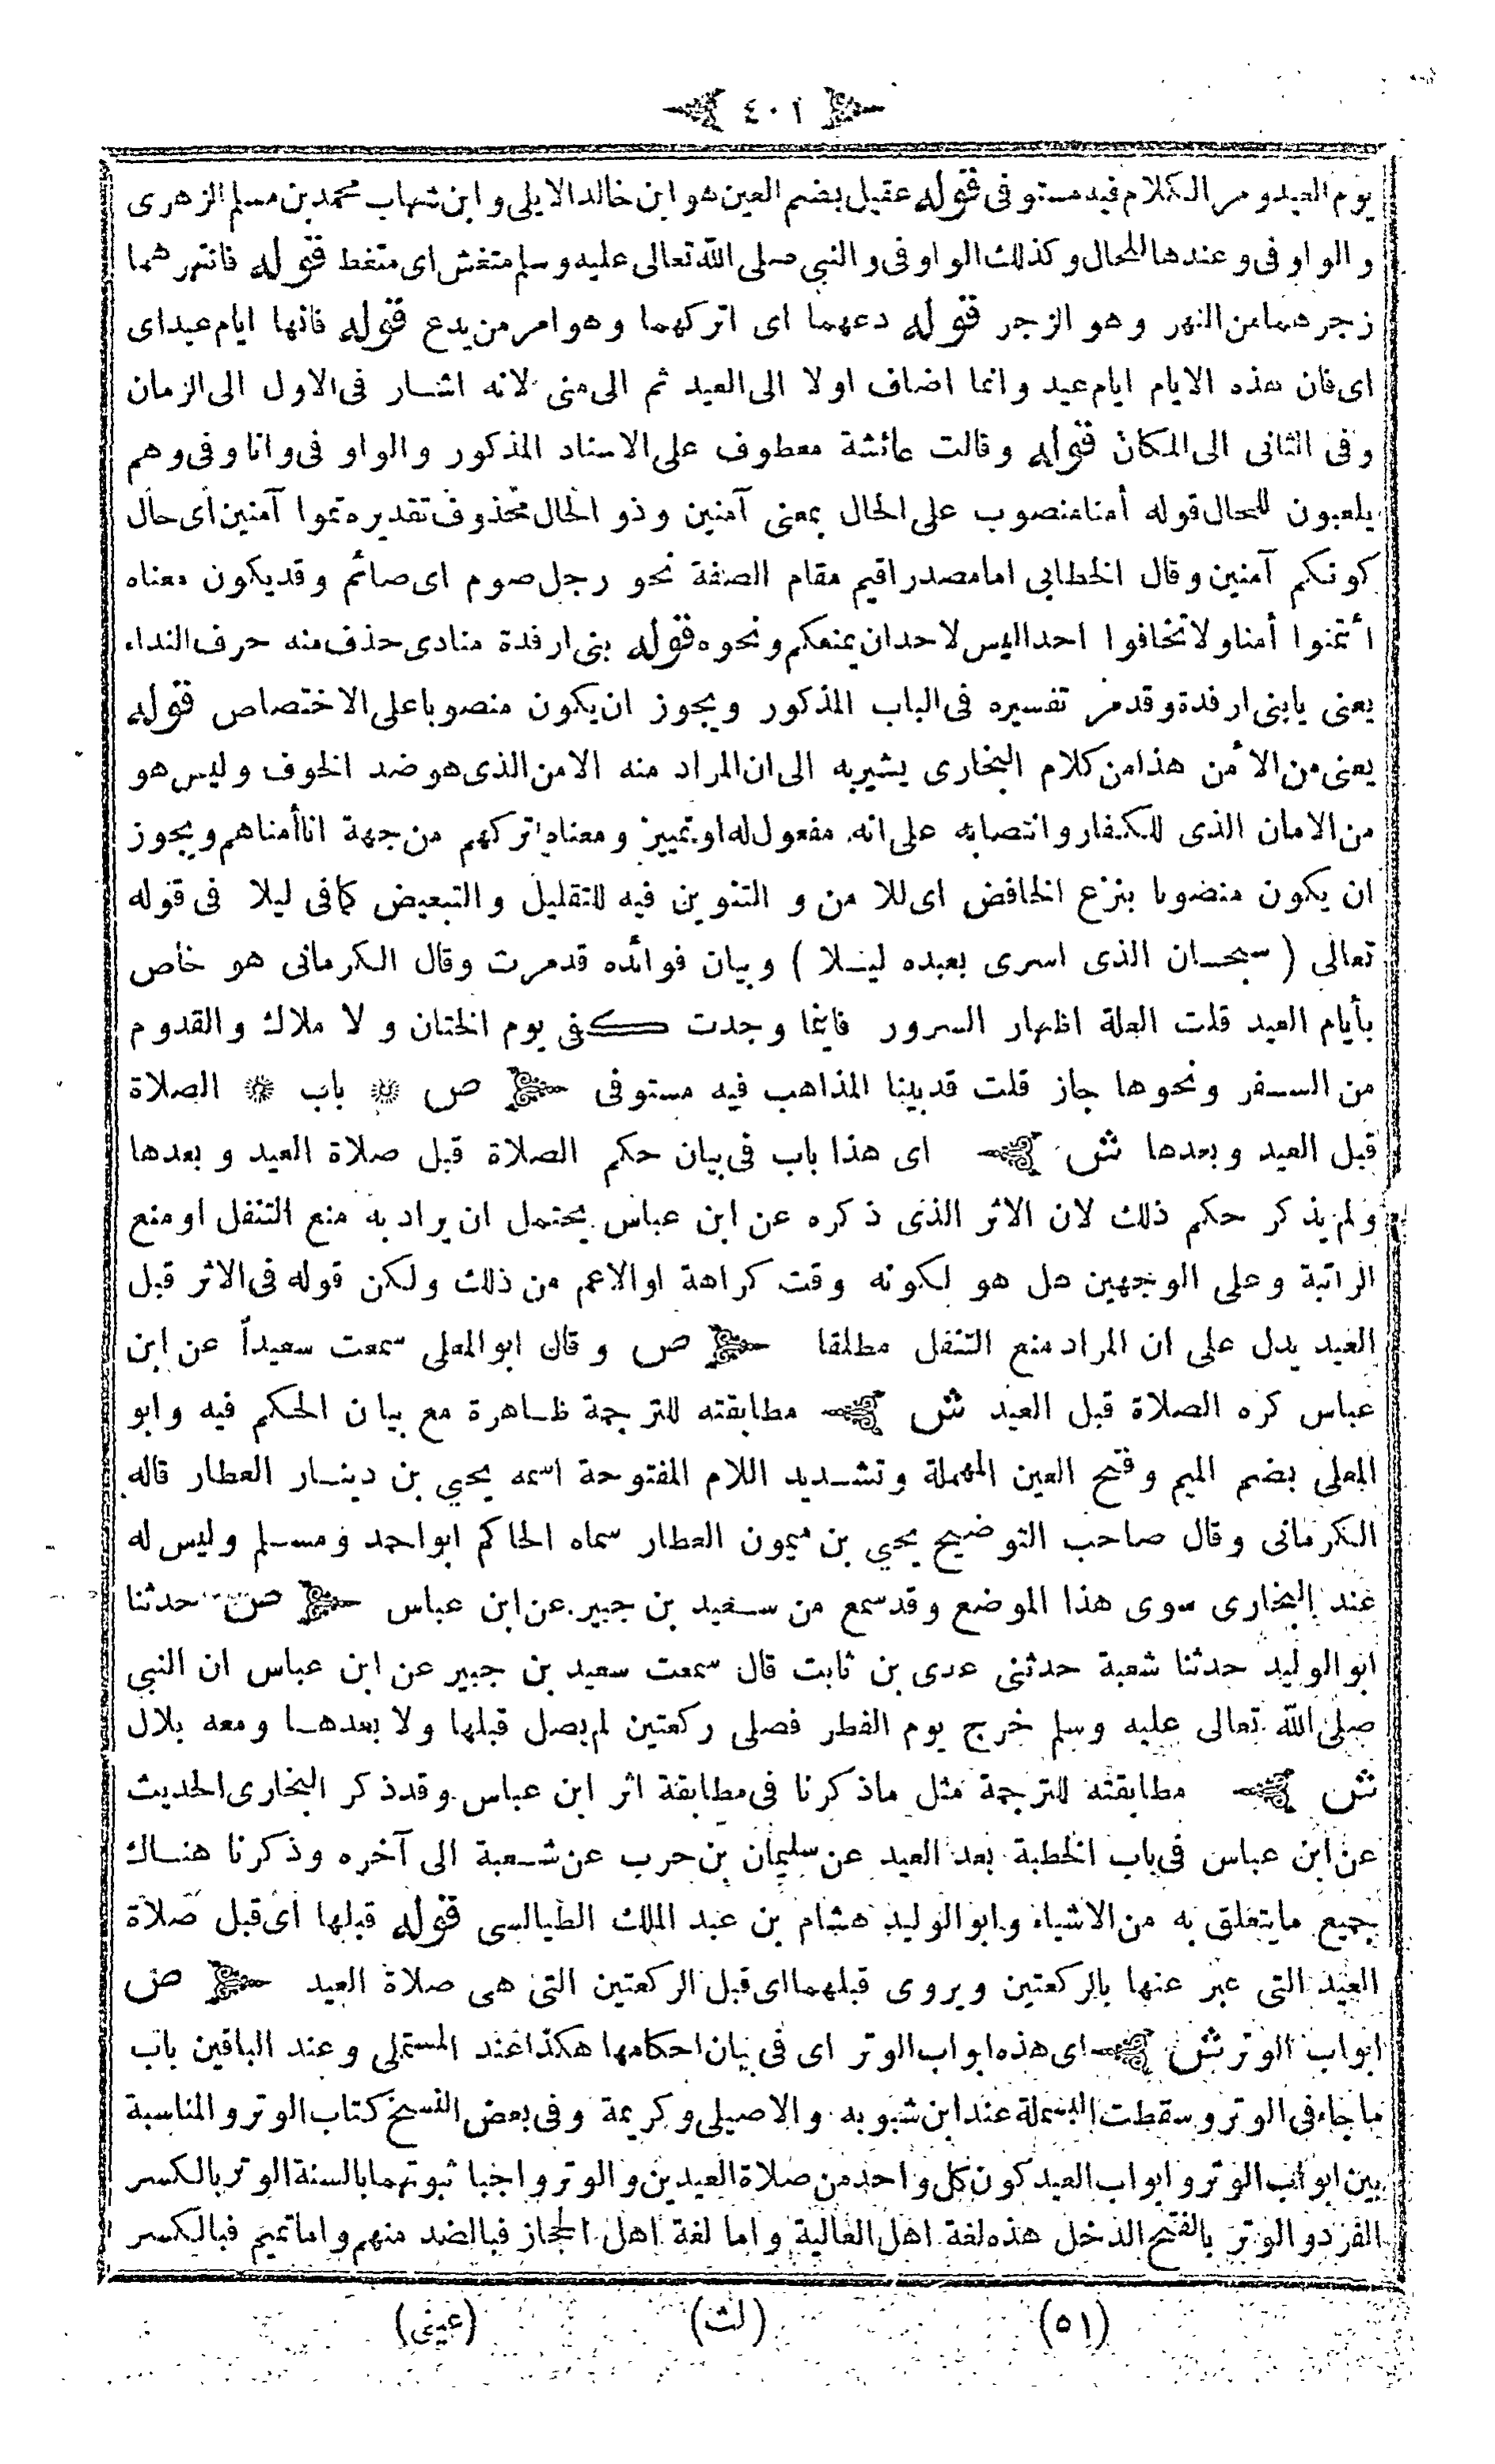 ٤٠١
يوم العيد ومر الكلام فيه مستوفى قوله عقيل بضم العين هو ابن خالد الايلى وابن شهاب محمد بن مسلم الزهرى
والواو فى وعندها للحال وكذلك الواو فى والنبي صلى الله تعالى عليه وسلم متغش اى متغط قوله فانتهرهما
زجرهما من النهر وهو الزجر قوله دعهما اى اتركهما وهو امر من يدع قوله فانها ايام عيد اى
اى فان هذه الايام ايام عيد وانما اضاف اولا الى العيد ثم الى منى لانه اشار فى الاول الى الزمان
وفى الثانى الى المكان قوله وقالت عائشة معطوف على الاسناد المذكور والواو فى وانا وفى وهم
يلعبون للحال قوله أمنا منصوب على الحال بمعنى آمنين وذو الحال محذوف تقديره تموا آمنين اى حال
كونكم آمنين وقال الخطابى امامصدر اقيم مقام الصفة نحو رجل صوم اى صائم وقد يكون معناه
ائتمنوا أمنا ولا تخافوا احدا ليس لاحد ان يمنعكم ونحوه قوله بنى ارفدة منادى حذف منه حرف النداء
يعنى يابنى ارفدة وقدمر تفسيره فى الباب المذكور ويجوز ان يكون منصوبا على الاختصاص قوله
يعنى من الأمن هذا من كلام البخارى يشير به الى ان المراد منه الامن الذى هو ضد الخوف وليس هو
من الامان الذى للكفار وانتصابه على انه مفعول له او تمييز ومعناه اتركهم من جهة انا أمناهم ويجوز
ان يكون منصوبا بنزع الخافض اى للامن و التنوين فيه للتقليل والتبعيض كما فى ليلا فى قوله
تعالى ( سبحان الذى اسرى بعبده ليلا ) وبيان فوائده قدمرت وقال الكرمانى هو خاص
بأيام العيد قلت العلة اظهار السرور فاينما وجدت كفى يوم الختان و لا ملاك والقدوم
من السفر ونحوها جاز قلت قدبينا المذاهب فيه مستوفى ص * باب * الصلاة
قبل العيد وبعدها ش اى هذا باب فى بيان حكم الصلاة قبل صلاة العيد و بعدها
ولم يذكر حكم ذلك لان الاثر الذى ذكره عن ابن عباس يحتمل ان يراد به منع التنفل او منع
الراتبة وعلى الوجهين هل هو لكونه وقت كراهة اوالاعم من ذلك ولكن قوله فى الاثر قبل
العيد يدل على ان المراد منع التنفل مطلقا ص وقال ابو المعلى سمعت سعيداً عن ابن
عباس كره الصلاة قبل العيد ش مطابقته للترجمة ظاهرة مع بيان الحكم فيه وابو
المعلى بضم الميم وفتح العين المهملة وتشديد اللام المفتوحة اسمه يحيي بن دينار العطار قاله
الكرمانى وقال صاحب التوضيح يحيي بن ميمون العطار سماه الحاكم ابو احمد ومسلم وليس له
عند البخارى سوى هذا الموضع وقد سمع من سعيد بن جبير عن ابن عباس ص حدثنا
ابو الوليد حدثنا شعبة حدثنى عدى بن ثابت قال سمعت سعيد بن جبير عن ابن عباس ان النبي
صلى الله تعالى عليه وسلم خرج يوم الفطر فصلى ركعتين لم يصل قبلها ولا بعدها ومعه بلال
ش مطابقته للترجمة مثل ماذكرنا فى مطابقة اثر ابن عباس وقد ذكر البخارى الحديث
عن ابن عباس فى باب الخطبة بعد العيد عن سليمان بن حرب عن شعبة الى آخره وذكرنا هناك
جميع مايتعلق به من الاشياء وابو الوليد هشام بن عبد الملك الطيالسى قوله قبلها اى قبل صلاة
العيد التى عبر عنها بالركعتين ويروى قبلهما اى قبل الركعتين التى هى صلاة العيد ص
ابواب الوتر ش اى هذه ابواب الوتر اى فى بيان احكامها هكذا عند المستملى وعند الباقين باب
ماجاء فى الوتر وسقطت البسملة عند ابن شبويه والاصيلى وكريمة وفى بعض النسخ كتاب الوتر والمناسبة
بين ابواب الوتر و ابواب العيد كون كل واحد من صلاة العيدين والوتر واجبا ثبوتهما بالسنة الوتر بالكسر
الفرد والوتر بالفتح الذحل هذه لغة اهل العالية واما لغة اهل الحجاز فبالضد منهم واما تميم فبالكسر
(٥١) (لث) (عينى)